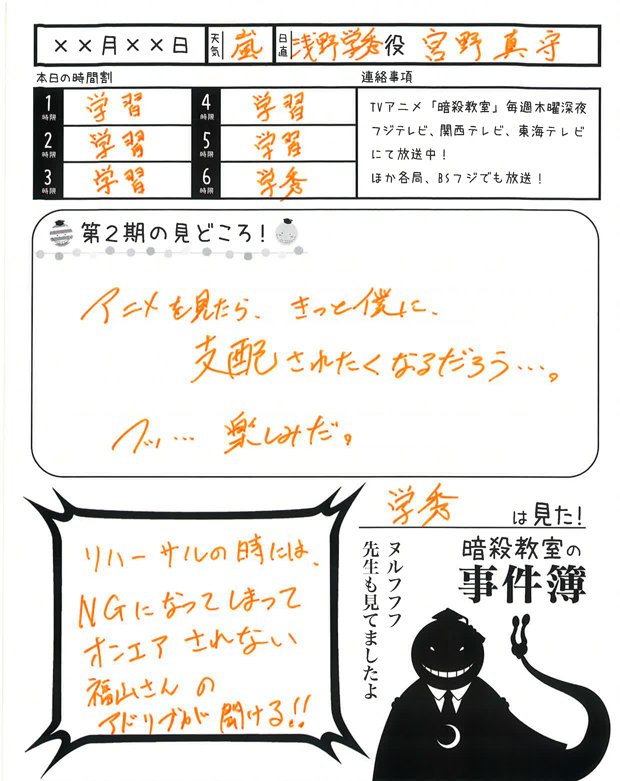 ××月××日 天気 嵐 日直 浅野学秀役 宮野真守
本日の時間割
1時限 学習 4時限 学習
2時限 学習 5時限 学習
3時限 学習 6時限 学秀
連絡事項
TVアニメ「暗殺教室」毎週木曜深夜
フジテレビ、関西テレビ、東海テレビ
にて放送中！
ほか各局、BSフジでも放送！
第2期の見どころ！
アニメを見たら、きっと僕に、
支配されたくなるだろう…。
フッ… 楽しみだ。
学秀は見た！
暗殺教室の
事件簿
ヌルフフフ
先生も見てましたよ
リハーサルの時には、
NGになってしまって
オンエアされない
福山さんの
アドリブが聞ける!!